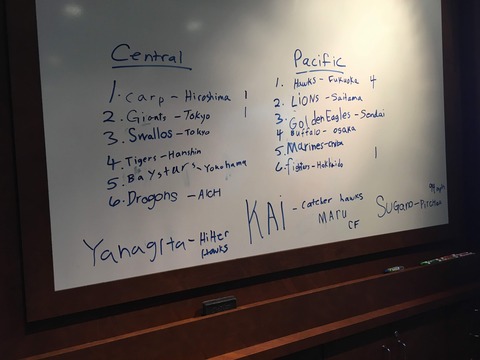 Central
1. Carp - Hiroshima 1
2. Giants - Tokyo 1
3. Swallos - Tokyo
4. Tigers - Hanshin
5. Baystars - Yokohama
6. Dragons - AICHI
Pacific
1. Hawks - Fukuoka 4
2. LIONS - Saitama
3. Golden Eagles - Sendai
4 Buffalo - osaka
5. Marines - chiba
6. fighters - Hokkaido 1
Yanagita - Hitter
Hawks
KAI - catcher hawks
MARU
CF
Sugano - Pitcher